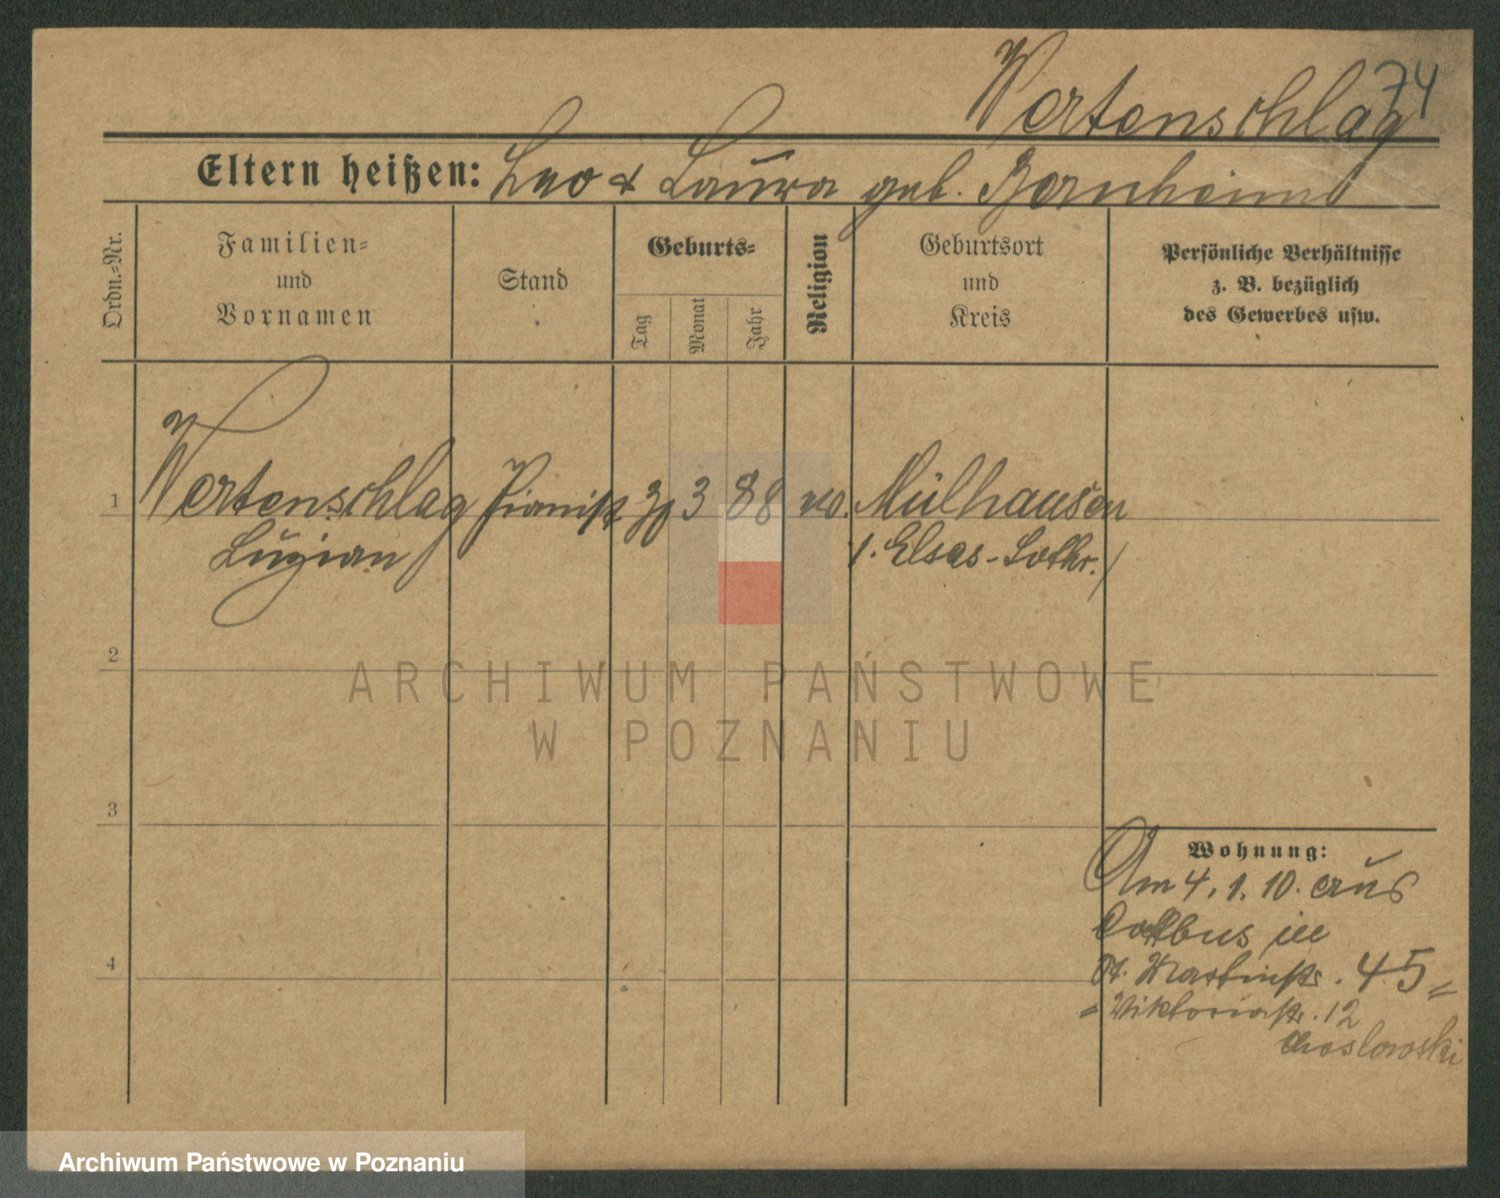 74
Wertenschlag
Eltern heißen: Leo & Laura geb. Bernheim
Ordn.-Nr.
Familien-
und
Vornamen
Stand
Geburts-
Tag
Monat
Jahr
Religion
Geburtsort
und
Kreis
Persönliche Verhältnisse
z. B. bezüglich
des Gewerbes usw.
1 Wertenschlag Pianist 30 3 88 mo. Mülhausen
Luzian /. Elsas-Lothr./
2
ARCHIWUM PAŃSTWOWE
W POZNANIU
3
Wohnung:
Am 4. 1. 10. aus
Cottbus
4
St. Martinstr. 45 =
= Viktoriastr. 12
Archiwum Państwowe w Poznaniu